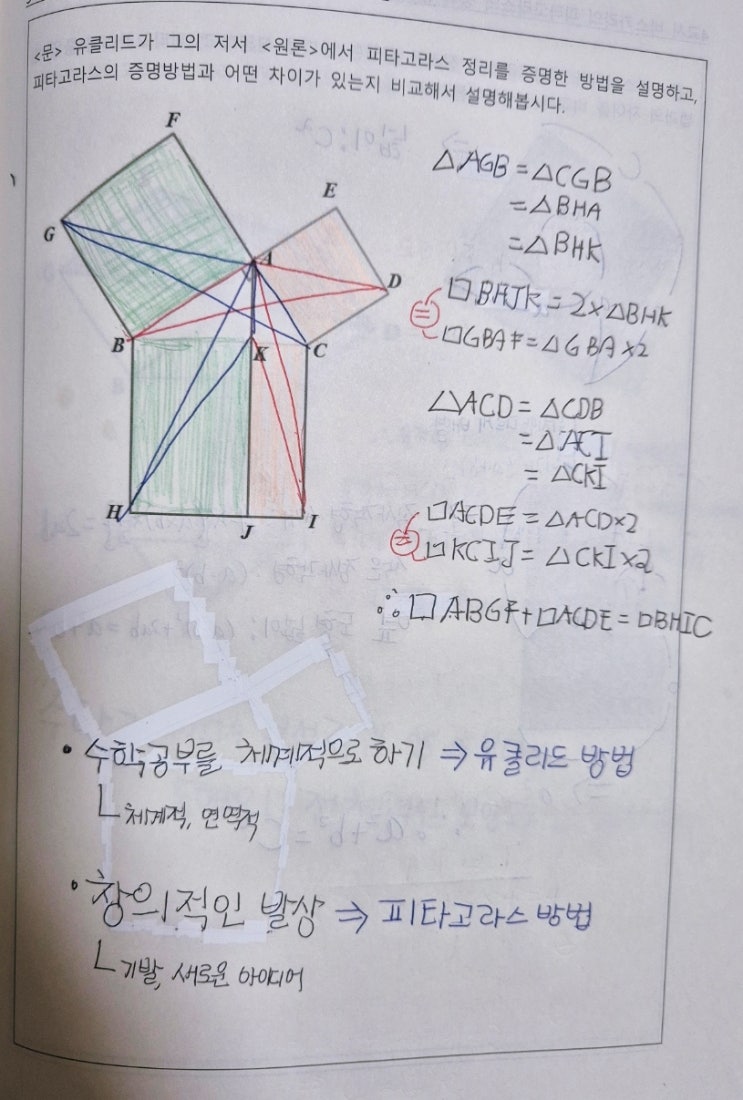 <문> 유클리드가 그의 저서 <원론>에서 피타고라스 정리를 증명한 방법을 설명하고,
피타고라스의 증명방법과 어떤 차이가 있는지 비교해서 설명해봅시다.
F
G
E
A
D
B
K
C
H
J
I
△AGB = △CGB
= △BHA
= △BHK
□BHJK = 2×△BHK
=
□GBAF = △GBA×2
△ACD = △CDB
= △ACI
= △CKI
□ACDE = △ACD×2
=
□KCIJ = △CKI×2
∴ □ABGF+□ACDE = □BHIC
• 수학공부를 체계적으로 하기 ⇒ 유클리드 방법
└ 체계적, 연역적
• 창의적인 발상 ⇒ 피타고라스 방법
└ 기발, 새로운 아이디어